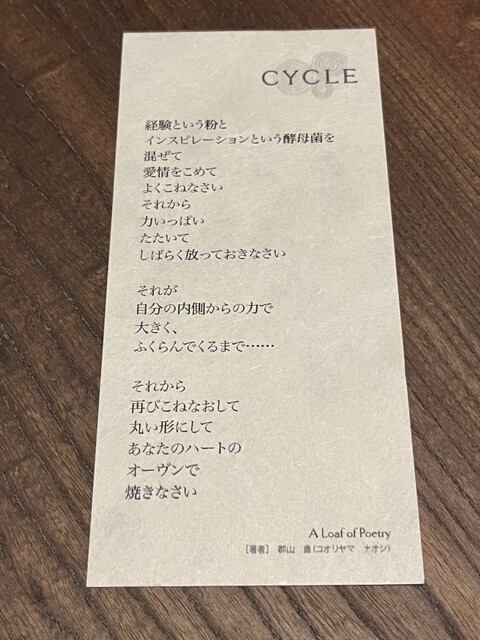 CYCLE
経験という粉と
インスピレーションという酵母菌を
混ぜて
愛情をこめて
よくこねなさい
それから
力いっぱい
たたいて
しばらく放っておきなさい
それが
自分の内側からの力で
大きく、
ふくらんでくるまで……
それから
再びこねなおして
丸い形にして
あなたのハートの
オーヴンで
焼きなさい
A Loaf of Poetry
［著者］ 郡山 直(コオリヤマ ナオシ)